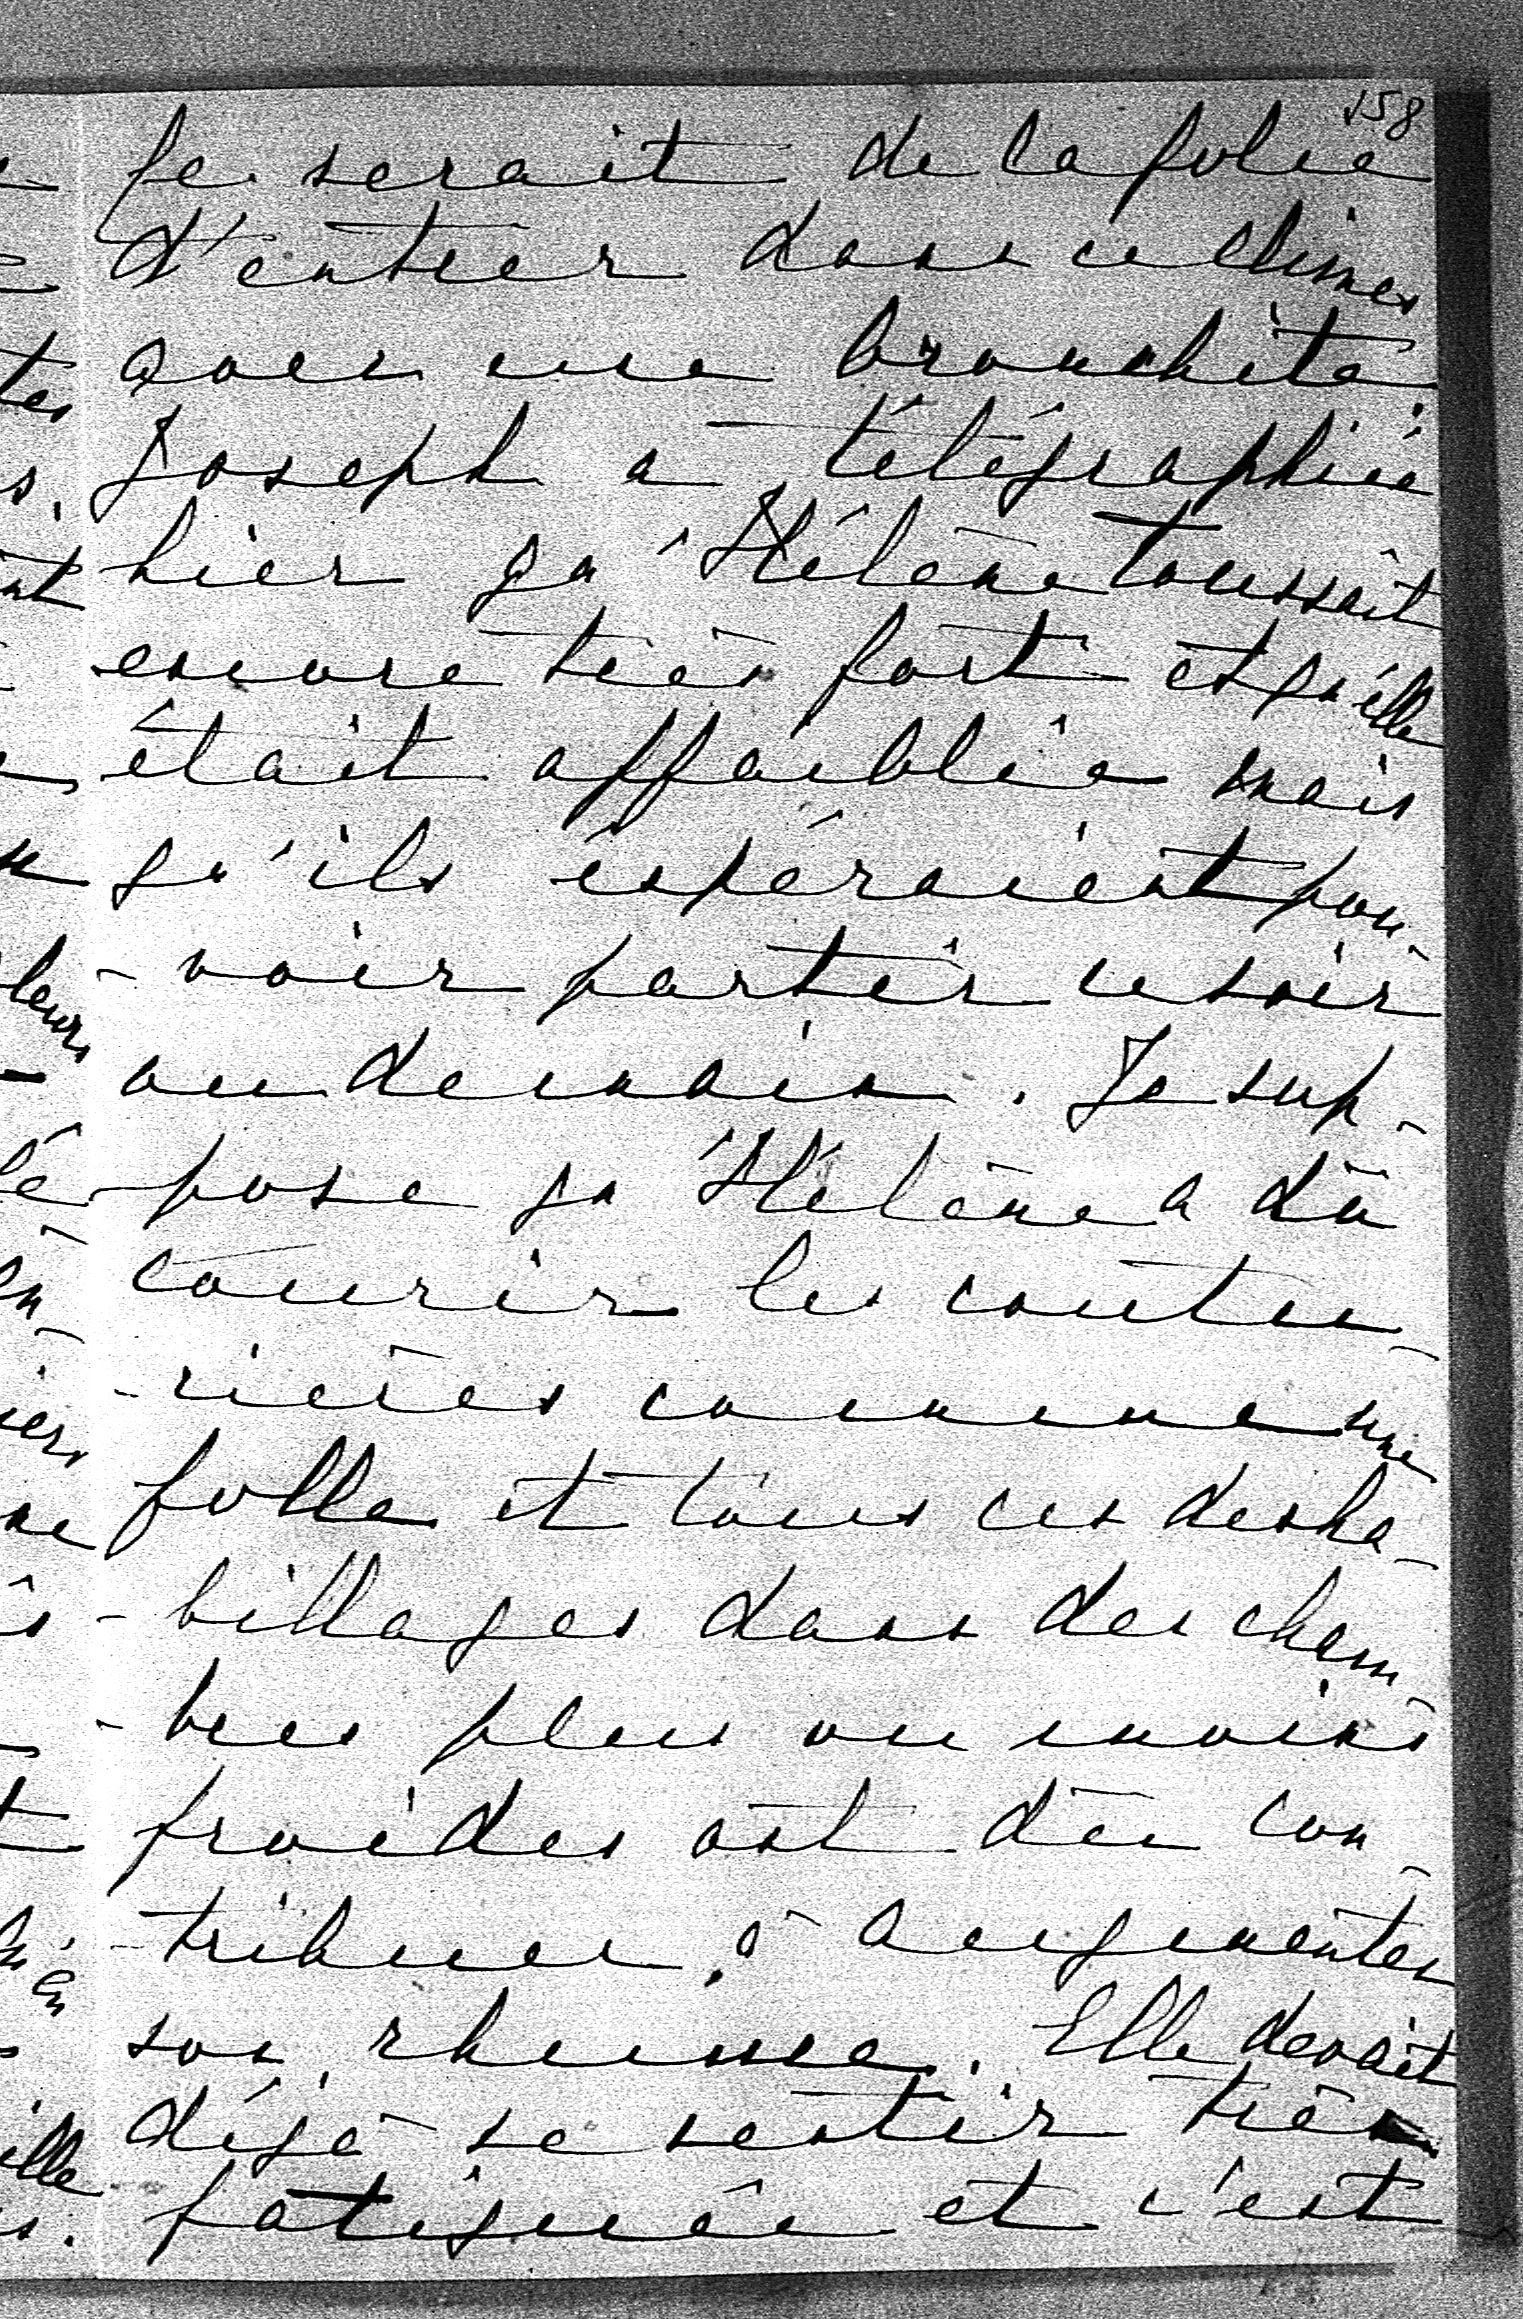 158
se serait de la folie
d'entrer dans ce climes
avec une bronchite.
Joseph a télégraphié
hier qu'Hélène toussait
encore très fort et qu'elle
était affaiblie mais
qu'ils espéraient pou-
-voir partir ce soir
ou demain. Je sup-
-pose qu'Hélène a dû
courir les coutu-
-rières comme une
folle et tous ces desha-
-billages dans des cham-
-bres plus ou moins
froides ont dû con-
-tribuer à augmenter
son rhume. Elle devait
déjà se sentir très
fatiguée et c'est